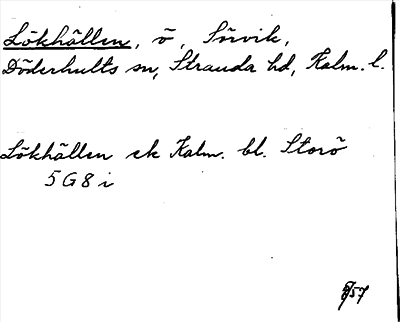 Lökhällen, ö, Sörvik,
Döderhults sn, Stranda hd, Kalm. l.
Lökhällen ek Kalm. bl. Storö
5 G 8 i